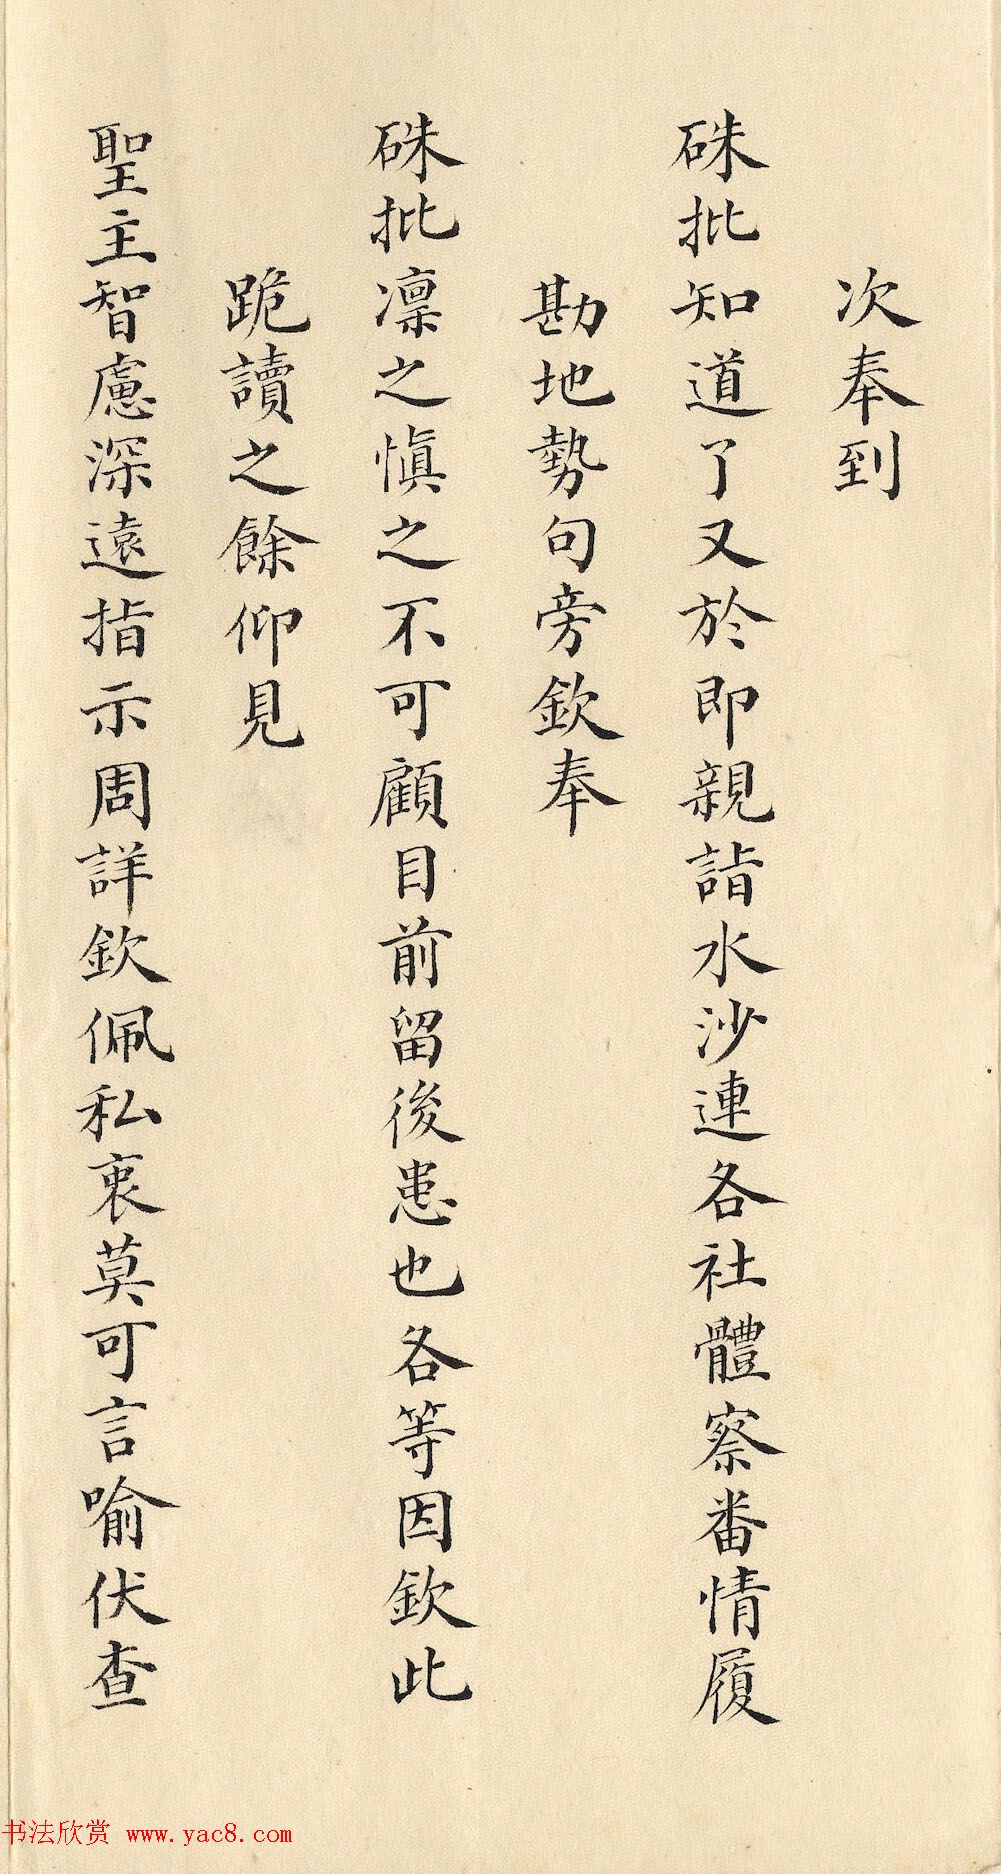 次奉到
硃批知道了又於即親詣水沙連各社體察番情履
勘地勢句旁欽奉
硃批凜之慎之不可顧目前留後患也各等因欽此
跪讀之餘仰見
聖主智慮深遠指示周詳欽佩私衷莫可言喻伏查
书法欣赏 www.yac8.com